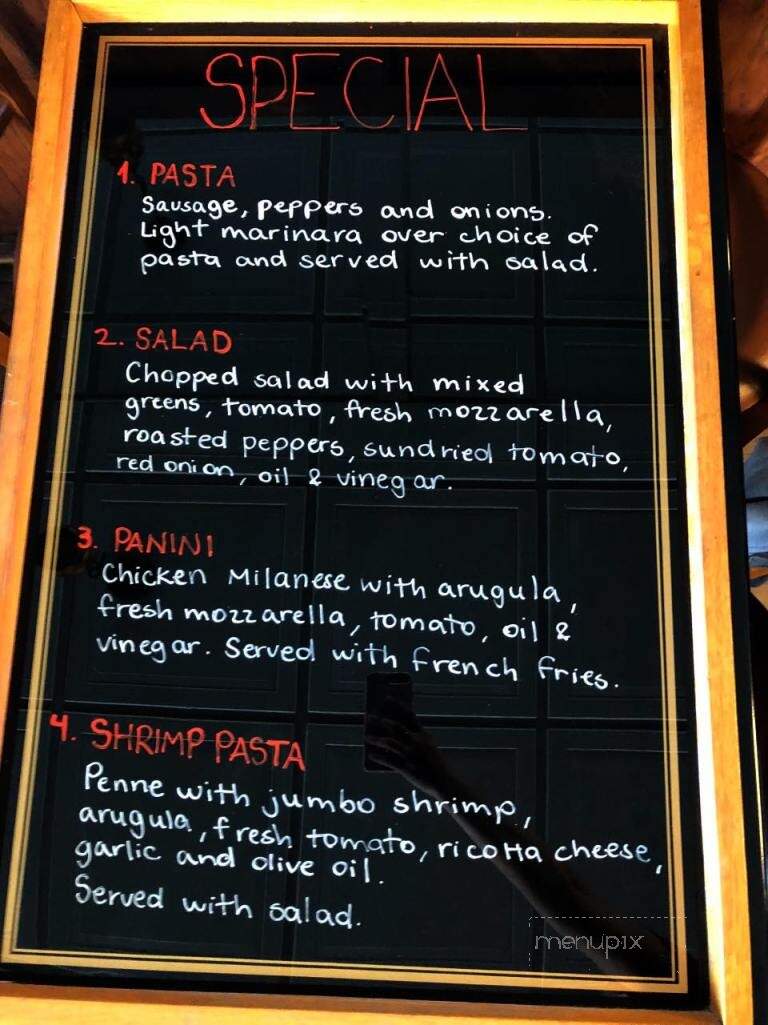 SPECIAL
1. PASTA
Sausage, peppers and onions.
Light marinara over choice of
pasta and served with salad.
2. SALAD
Chopped salad with mixed
greens, tomato, fresh mozzarella,
roasted peppers, sundried tomato,
red onion, oil & vinegar.
3. PANINI
Chicken Milanese with arugula,
fresh mozzarella, tomato, oil &
vinegar. Served with french fries.
4. SHRIMP PASTA
Penne with jumbo shrimp,
arugula, fresh tomato, ricotta cheese,
garlic and olive oil.
Served with salad.
menupix